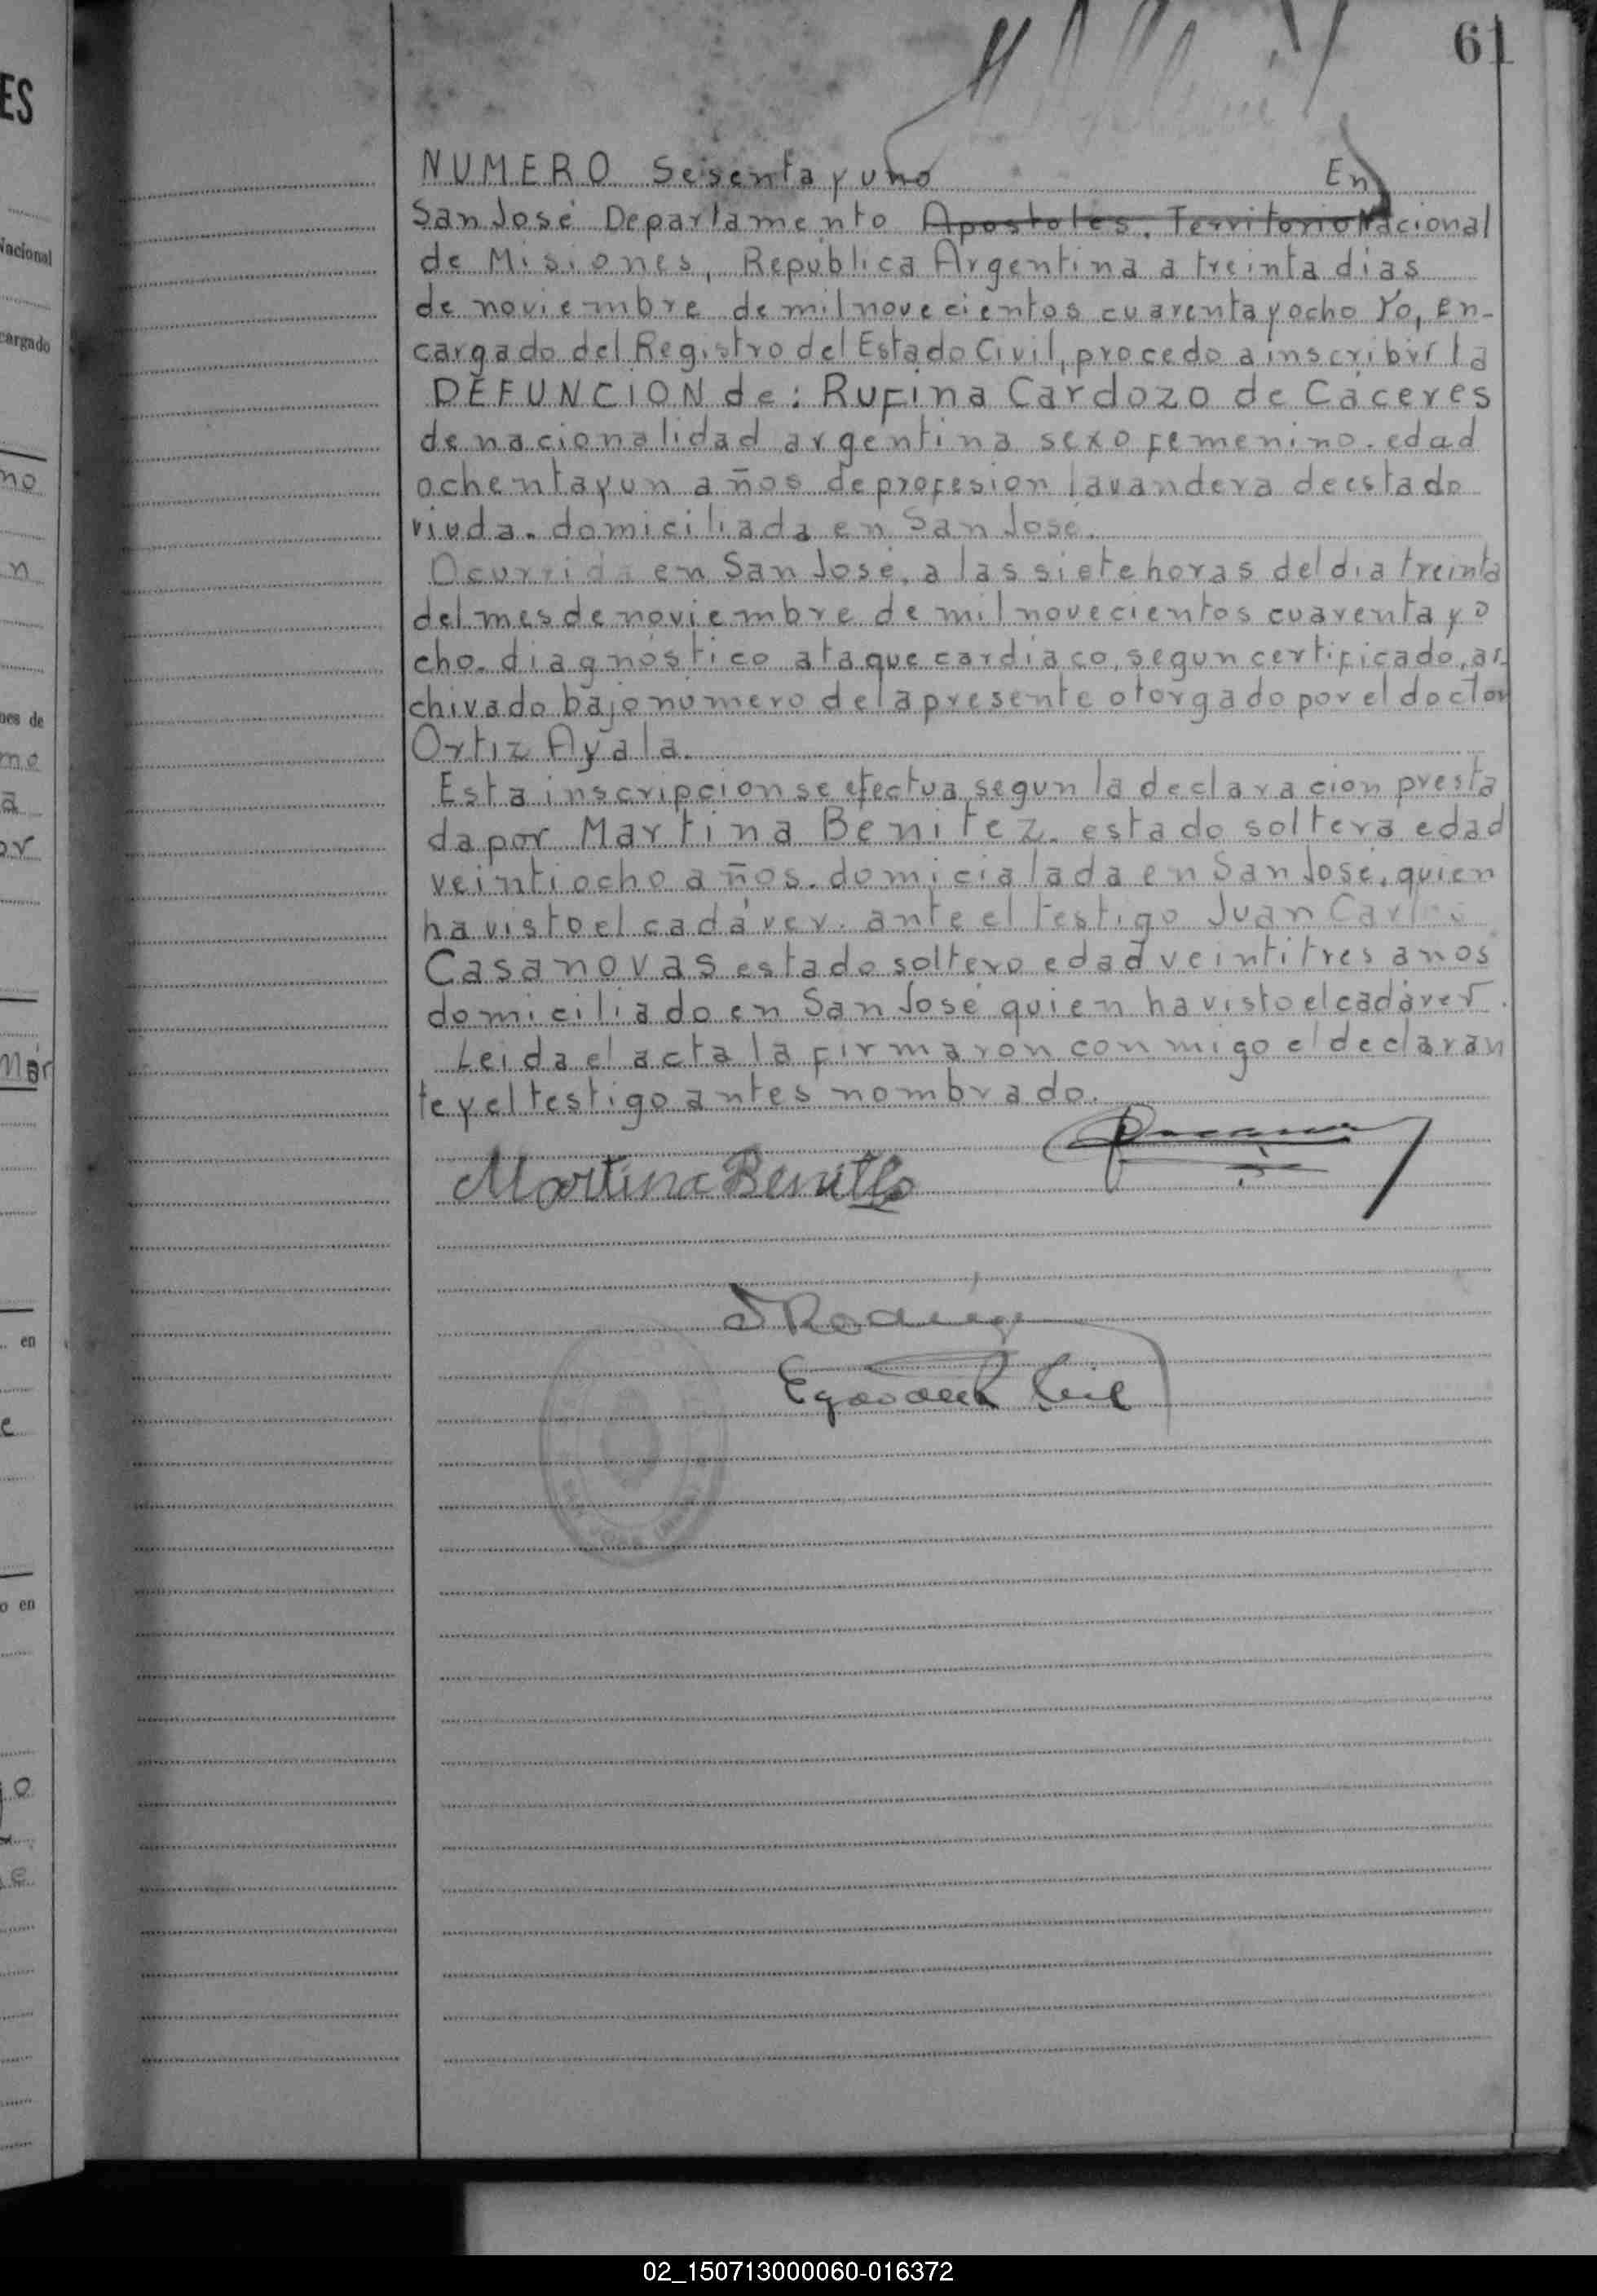 61
NUMERO Sesenta y uno En
San José Departamento Apostoles. Territorio Nacional
de Misiones, Republica Argentina a treinta dias
de noviembre de mil novecientos cuarenta y ocho Yo, en-
cargado del Registro del Estado Civil, procedo a inscribir la
DEFUNCION de: Rufina Cardozo de Cáceres
de nacionalidad argentina sexo femenino. edad
ochenta y un años de profesion lavandera de estado
viuda. domiciliada en San José.
Ocurrida en San José, a las siete horas del dia treinta
del mes de noviembre de mil novecientos cuarenta y o
cho. diagnóstico ataque cardiaco, segun certificado, ar-
chivado bajo numero de la presente otorgado por el doctor
Ortiz Ayala.
Esta inscripcion se efectua segun la declaracion presta
da por Martina Benitez. estado soltera edad
veintiocho años. domicialada en San José, quien
ha visto el cadáver. ante el testigo Juan Carlos
Casanovas estado soltero edad veintitres anos
domiciliado en San José quien ha visto el cadáver.
Leida el acta la firmaron conmigo el declaran
te y el testigo antes nombrado.
Martina Benitez
ES
Nacional
cargado
no
n
nes de
mo
a
or
Mar
en
e
o en
o
e
02_150713000060-016372